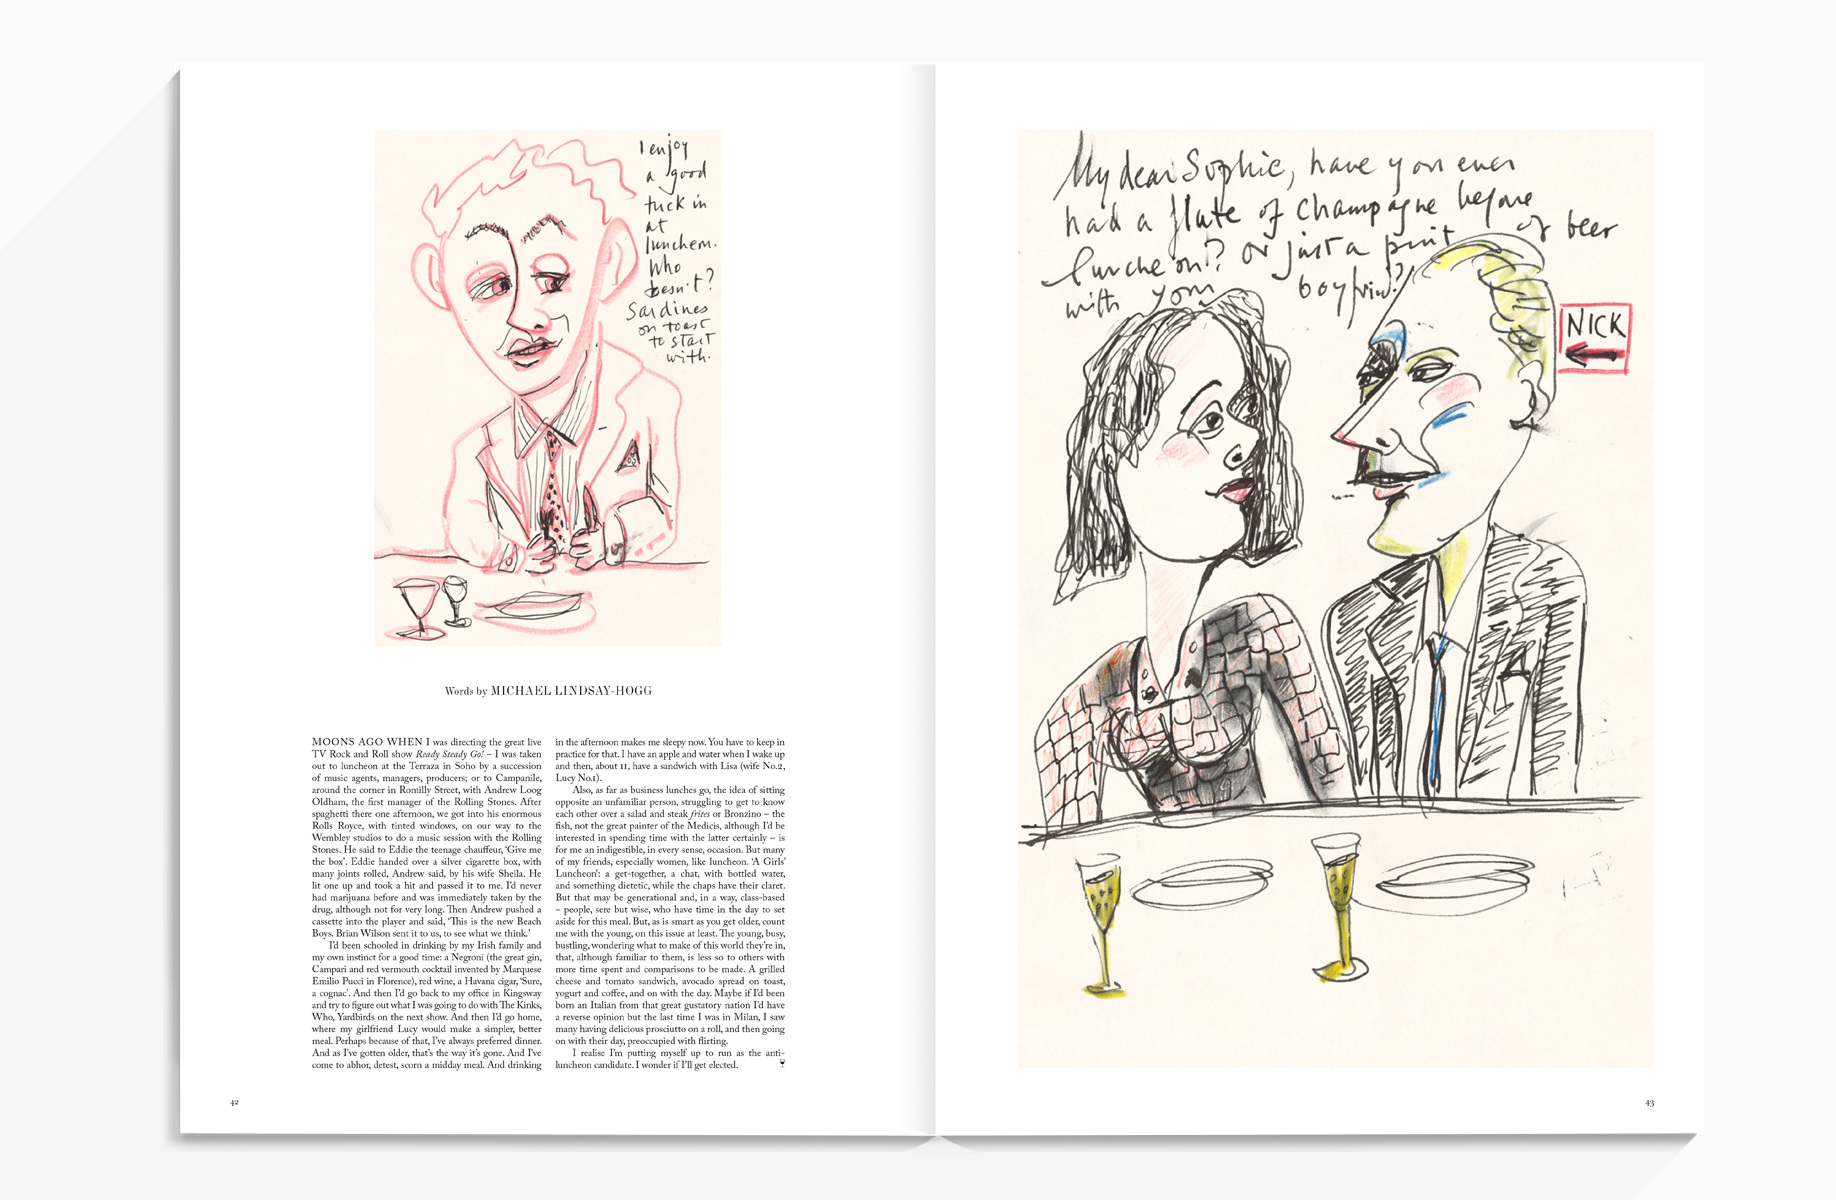 I enjoy
a good
tuck in
at
luncheon.
Who
doesn't?
Sardines
on toast
to start
with.
Words by MICHAEL LINDSAY-HOGG
MOONS AGO WHEN I was directing the great live
TV Rock and Roll show Ready Steady Go! – I was taken
out to luncheon at the Terraza in Soho by a succession
of music agents, managers, producers; or to Campanile,
around the corner in Romilly Street, with Andrew Loog
Oldham, the first manager of the Rolling Stones. After
spaghetti there one afternoon, we got into his enormous
Rolls Royce, with tinted windows, on our way to the
Wembley studios to do a music session with the Rolling
Stones. He said to Eddie the teenage chauffeur, 'Give me
the box'. Eddie handed over a silver cigarette box, with
many joints rolled, Andrew said, by his wife Sheila. He
lit one up and took a hit and passed it to me. I'd never
had marijuana before and was immediately taken by the
drug, although not for very long. Then Andrew pushed a
cassette into the player and said, 'This is the new Beach
Boys. Brian Wilson sent it to us, to see what we think.'
I'd been schooled in drinking by my Irish family and
my own instinct for a good time: a Negroni (the great gin,
Campari and red vermouth cocktail invented by Marquese
Emilio Pucci in Florence), red wine, a Havana cigar, 'Sure,
a cognac'. And then I'd go back to my office in Kingsway
and try to figure out what I was going to do with The Kinks,
Who, Yardbirds on the next show. And then I'd go home,
where my girlfriend Lucy would make a simpler, better
meal. Perhaps because of that, I've always preferred dinner.
And as I've gotten older, that's the way it's gone. And I've
come to abhor, detest, scorn a midday meal. And drinking
in the afternoon makes me sleepy now. You have to keep in
practice for that. I have an apple and water when I wake up
and then, about 11, have a sandwich with Lisa (wife No.2,
Lucy No.1).
Also, as far as business lunches go, the idea of sitting
opposite an unfamiliar person, struggling to get to know
each other over a salad and steak frites or Bronzino – the
fish, not the great painter of the Medicis, although I'd be
interested in spending time with the latter certainly – is
for me an indigestible, in every sense, occasion. But many
of my friends, especially women, like luncheon. 'A Girls'
Luncheon': a get-together, a chat, with bottled water,
and something dietetic, while the chaps have their claret.
But that may be generational and, in a way, class-based
– people, sere but wise, who have time in the day to set
aside for this meal. But, as is smart as you get older, count
me with the young, on this issue at least. The young, busy,
bustling, wondering what to make of this world they're in,
that, although familiar to them, is less so to others with
more time spent and comparisons to be made. A grilled
cheese and tomato sandwich, avocado spread on toast,
yogurt and coffee, and on with the day. Maybe if I'd been
born an Italian from that great gustatory nation I'd have
a reverse opinion but the last time I was in Milan, I saw
many having delicious prosciutto on a roll, and then going
on with their day, preoccupied with flirting.
I realise I'm putting myself up to run as the anti-
luncheon candidate. I wonder if I'll get elected.
42
My dear Sophie, have you ever
had a flute of champagne before
luncheon? Or just a pint of beer
with your boyfriend?
NICK
43